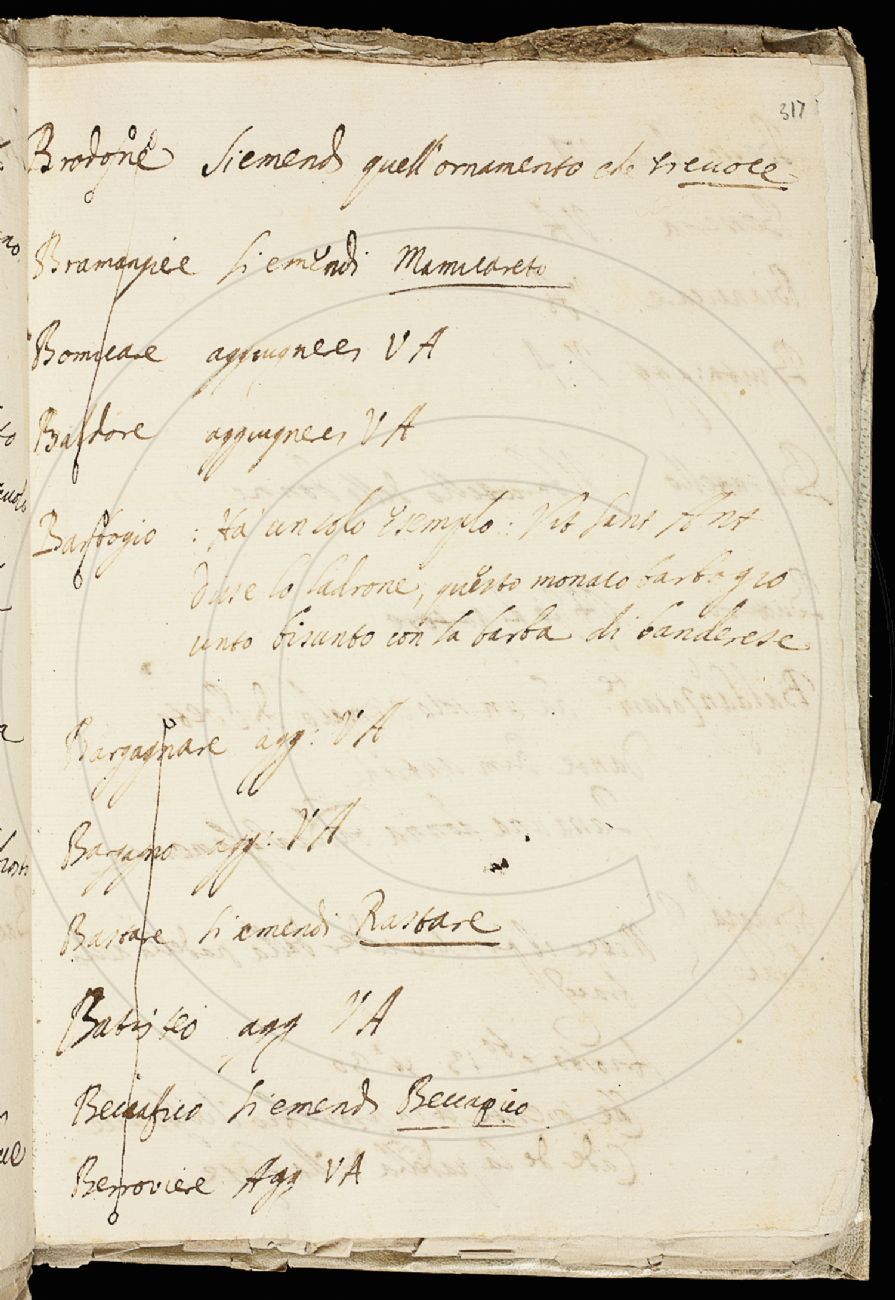 317
Brodone Si emendi quell'ornamento che
Bramangiere Si emendi
Bomicare aggiugnersi V A
Baldore aggiugnersi V A
Barbogio : Ha un solo esemplo: Vit Sant Ant
disse lo ladrone, questo monaco barbogio
unto bisunto con la barba di banderese
Bargagnare agg: V A
Bargagno agg: V A
Bastare Si emendi Rastare
Batisteo agg V A
Beccafico Si emendi Beccapico
Berroviere Agg V A